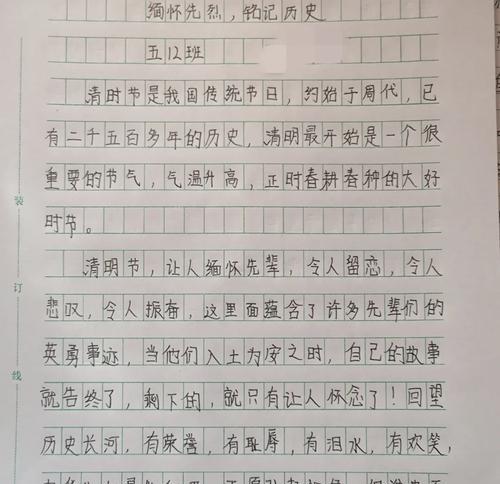 缅怀先烈，铭记历史
五12班
清时节是我国传统节日，约始于周代，已
有二千五百多年的历史，清明最开始是一个很
重要的节气，气温升高，正时春耕春种的大好
时节。
清明节，让人缅怀先辈，令人留恋，令人
悲叹，令人振奋，这里面蕴含了许多先辈们的
英勇事迹，当他们入土为安之时，自己的故事
就告终了，剩下的，就只有让人怀念了！回望
历史长河，有荣誉，有耻辱，有泪水，有欢笑，
装
订
线